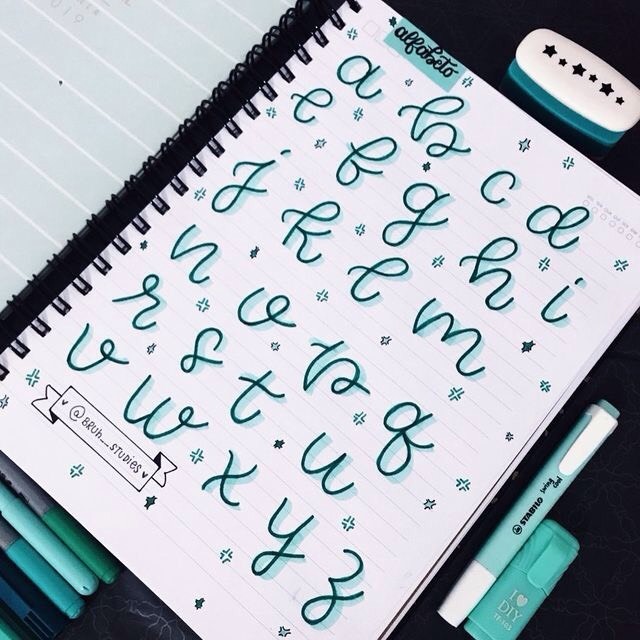 alfabeto
a b c d
e f g h i
j k l m
n o p q
r s t u
v w x y z
@BRUH__STUDIES
STABILO swing cool
I ♥
DIY